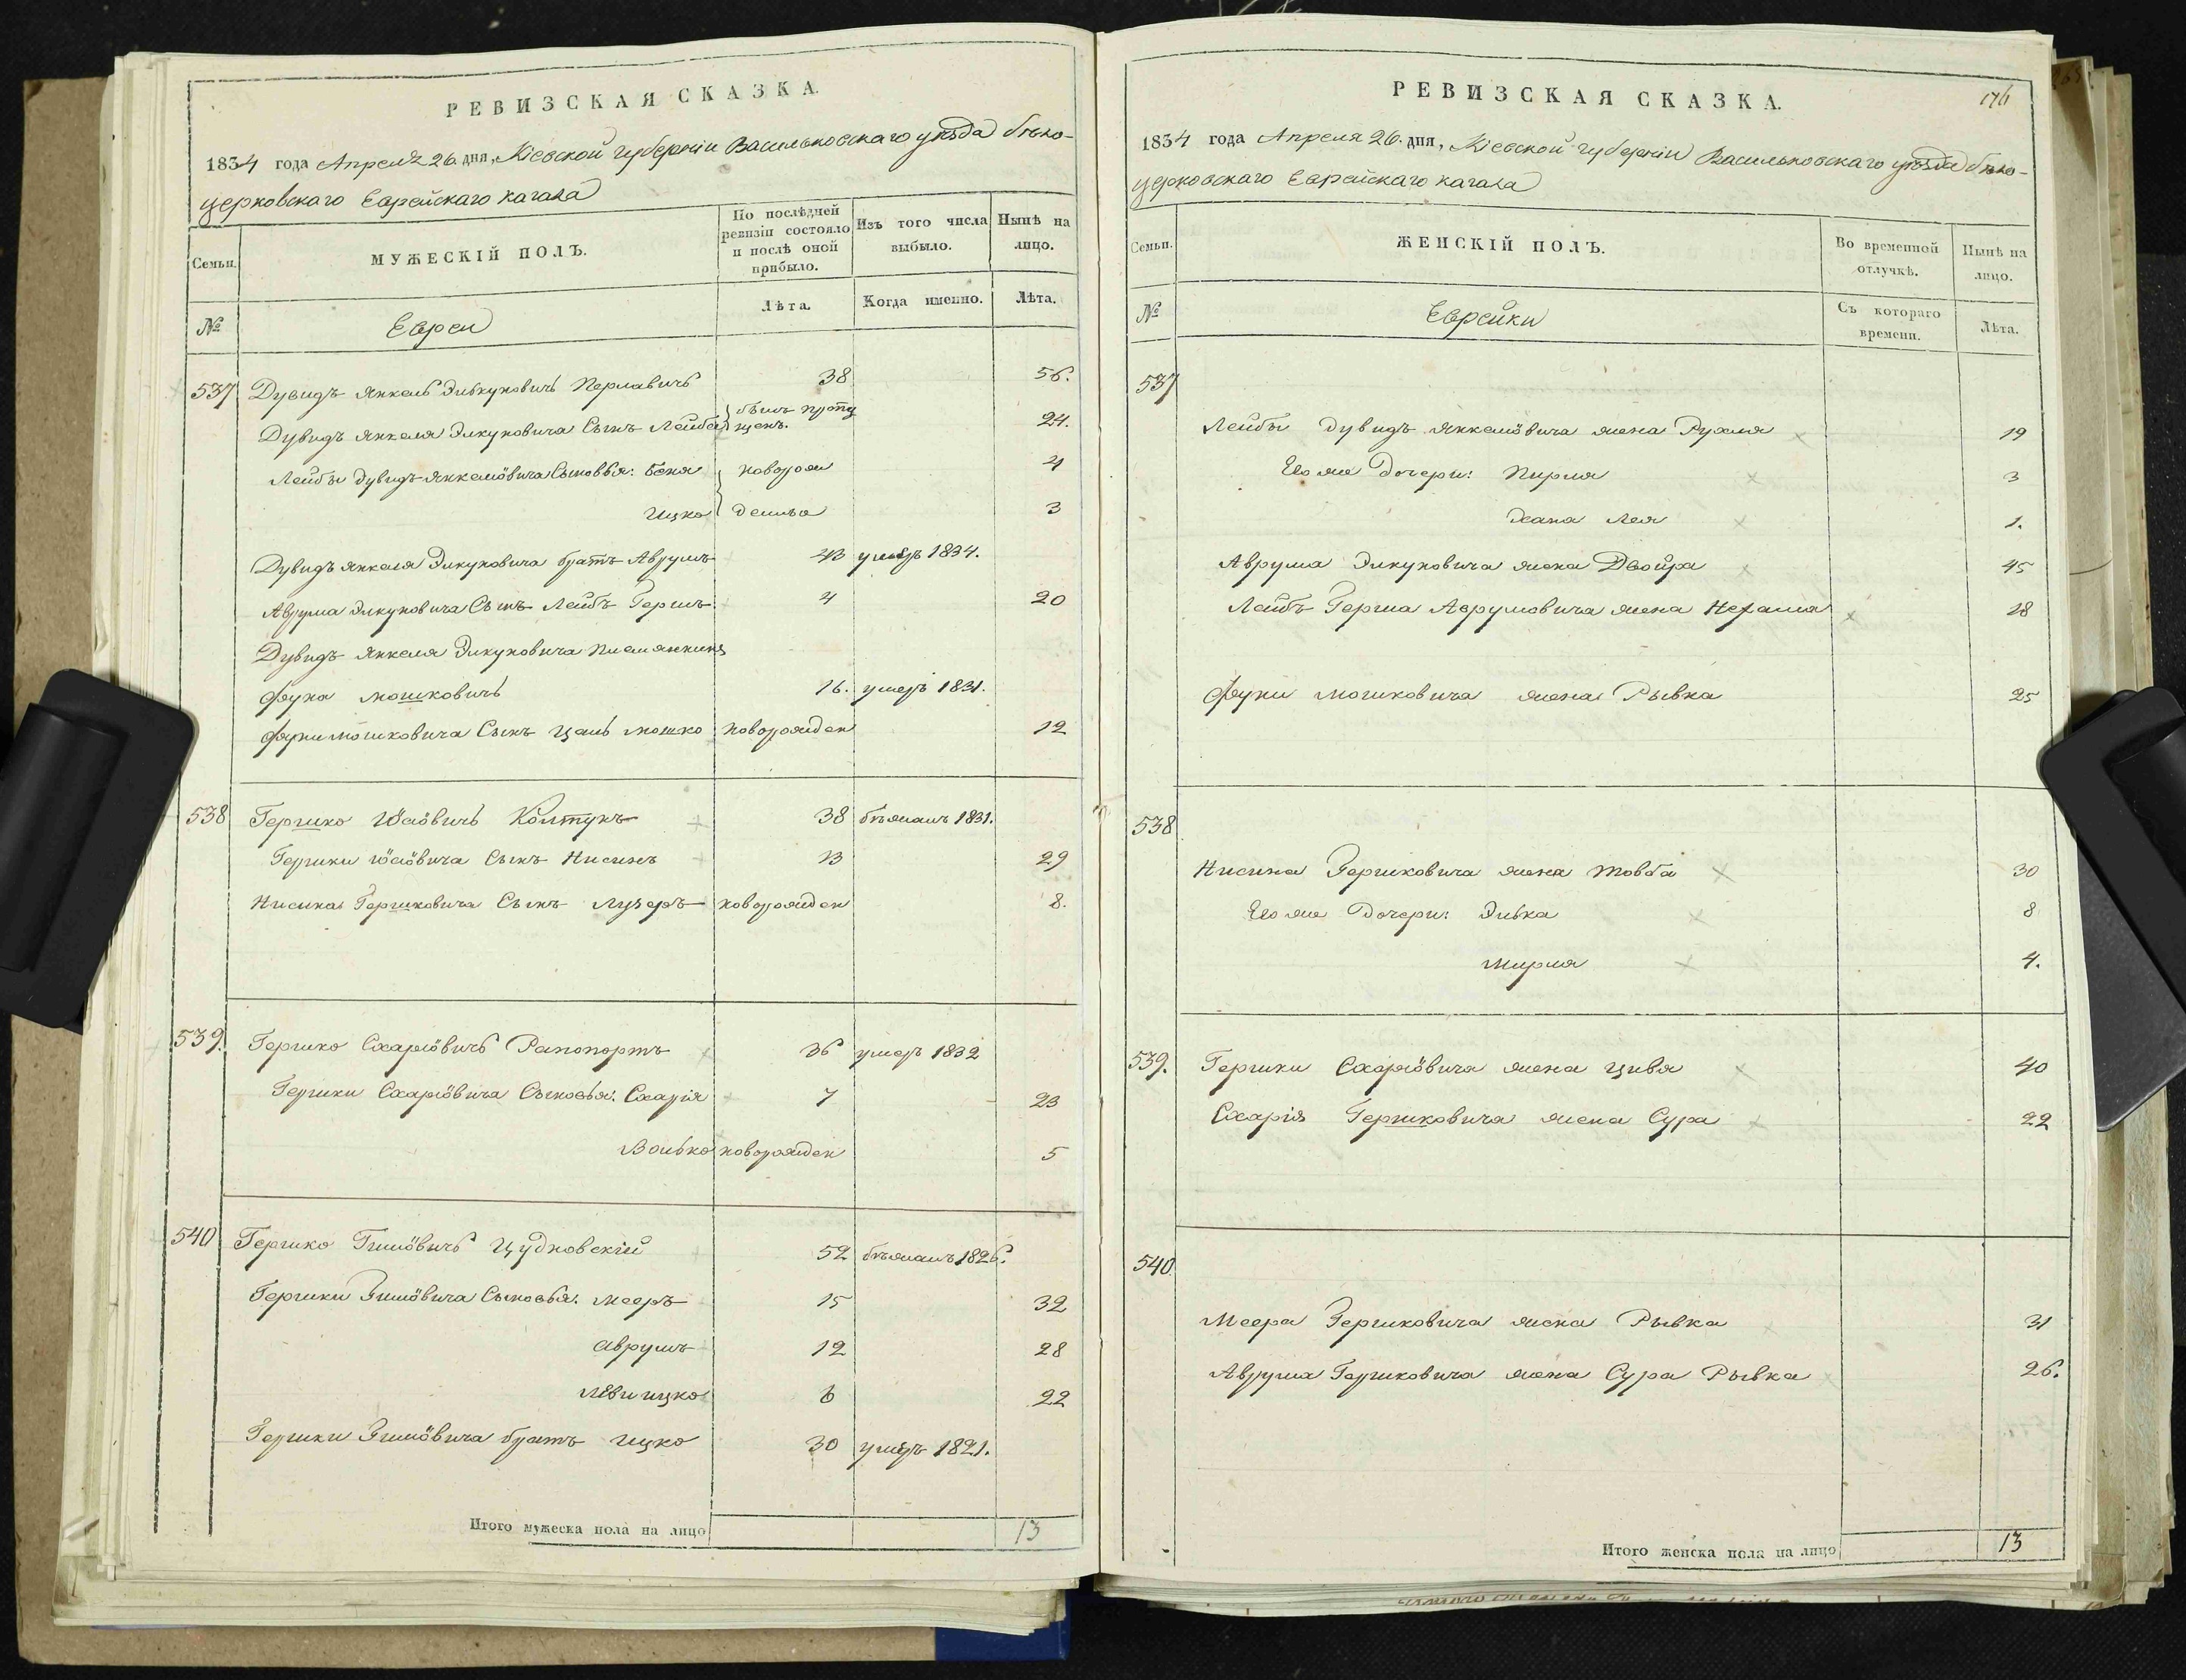 РЕВИЗСКАЯ СКАЗКА.
1834 года Апреля 26 дня, Кіевской губерніи Васильковскаго уѣзда бѣло-
церковскаго Еврейскаго кагала
Семьи.
МУЖЕСКІЙ ПОЛЪ.
По послѣдней ревизіи состояло и послѣ оной прибыло.
Изъ того числа выбыло.
Нынѣ на лицо.
№
Евреи
Лѣта.
Когда именно.
Лѣта.
537 Дувидъ Янкель Элькуновичъ 38 56.
Дувидъ Янкеля Элкуновича Сынъ Лейба былъ пропу щенъ. 24.
Лейбы Дувидъ-Янкелiовича Сыновья: Беня новорож 4
Ицко денные 3
Дувидъ Янкеля Элкуновича братъ Аврумъ 43 умеръ 1834.
Аврума Элкуновича Сынъ Лейбъ Гершъ 4 20
Дувидъ Янкеля Элкуновича племянникъ
Фука Мошковичъ 16. умеръ 1831.
Фуки Мошковича Сынъ Цаль Мошко новорожден 12
538 Гершко Іосіовичъ Колтунъ 38 бѣжалъ 1831.
Гершки Іосіовича Сынъ Нисинъ 13 29
Нисина Гершковича Сынъ Лузеръ новорожден 8.
539. Гершко Схаріовичъ Рапопортъ 36 умеръ 1832
Гершки Схаріовича Сыновья: Схарія 7 23
Волько новорожден 5
540 Гершко Гиліовичъ Цудновскій 52 бѣжалъ 1826.
Гершки Гиліовича Сыновья: Мееръ 15 32
Аврумъ 12 28
Леви Ицко 6 22
Гершки Гиліовича братъ Ицко 30 умеръ 1821.
Итого мужеска пола на лицо 13
РЕВИЗСКАЯ СКАЗКА.
176
1834 года Апреля 26. дня, Кіевской губерніи Васильковскаго уѣзда бѣло-
церковскаго Еврейскаго кагала
Семьи.
ЖЕНСКІЙ ПОЛЪ.
Во временной отлучкѣ.
Нынѣ на лицо.
№
Еврейки
Съ котораго времени.
Лѣта.
537
Лейбы Дувидъ Янкелiовича жена Рухля 19
Его же Дочери: Пирля 3
Хана Лея 1.
Аврума Элкуновича жена Двойра 45
Лейбъ Герша Аврумовича жена Нехама 18
Фуки Мошковича жена Рывка 25
538
Нисина Гершковича жена Товба 30
Его же Дочери: Элька 8
Мирля 4.
539. Гершки Схаріовича жена Цивя 40
Схарія Гершковича жена Сура 22
540.
Меера Гершковича жена Рывка 31
Аврума Гершковича жена Сура Рывка 26.
Итого женска пола на лицо 13